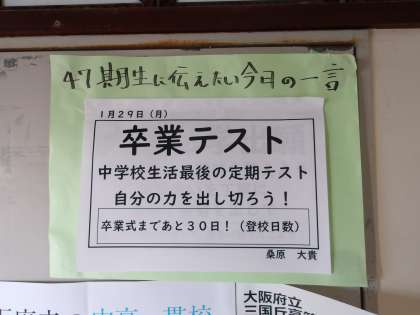 47期生に伝えたい今日の一言
1月29日(月)
卒業テスト
中学校生活最後の定期テスト
自分の力を出し切ろう！
卒業式まであと30日！(登校日数)
桑原 大貴
大阪府立